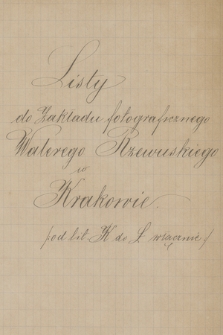 Listy
do Zakładu fotograficznego
Walerego Rzewuskiego
w
Krakowie
pod lit. K do Ł włącznie/